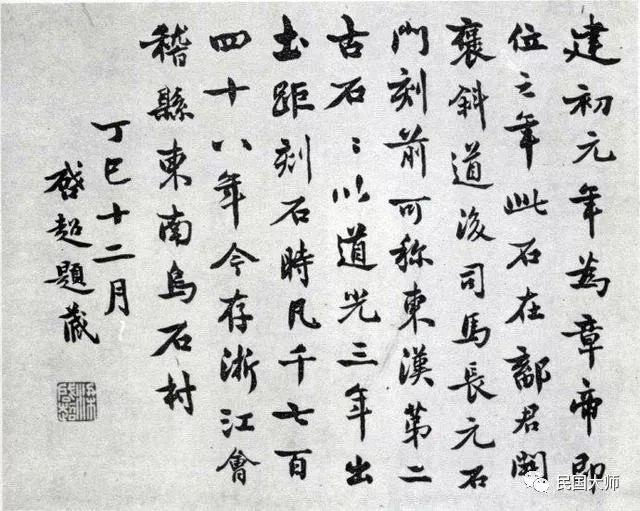 建初元年為章帝即
位之年此石在鄐君開
褒斜道後司馬長元石
門刻前可称東漢第二
古石〻以道光三年出
土距刻石時凡千七百
四十八年今存浙江會
稽縣東南烏石村
丁巳十二月
啓超題藏
民国大师